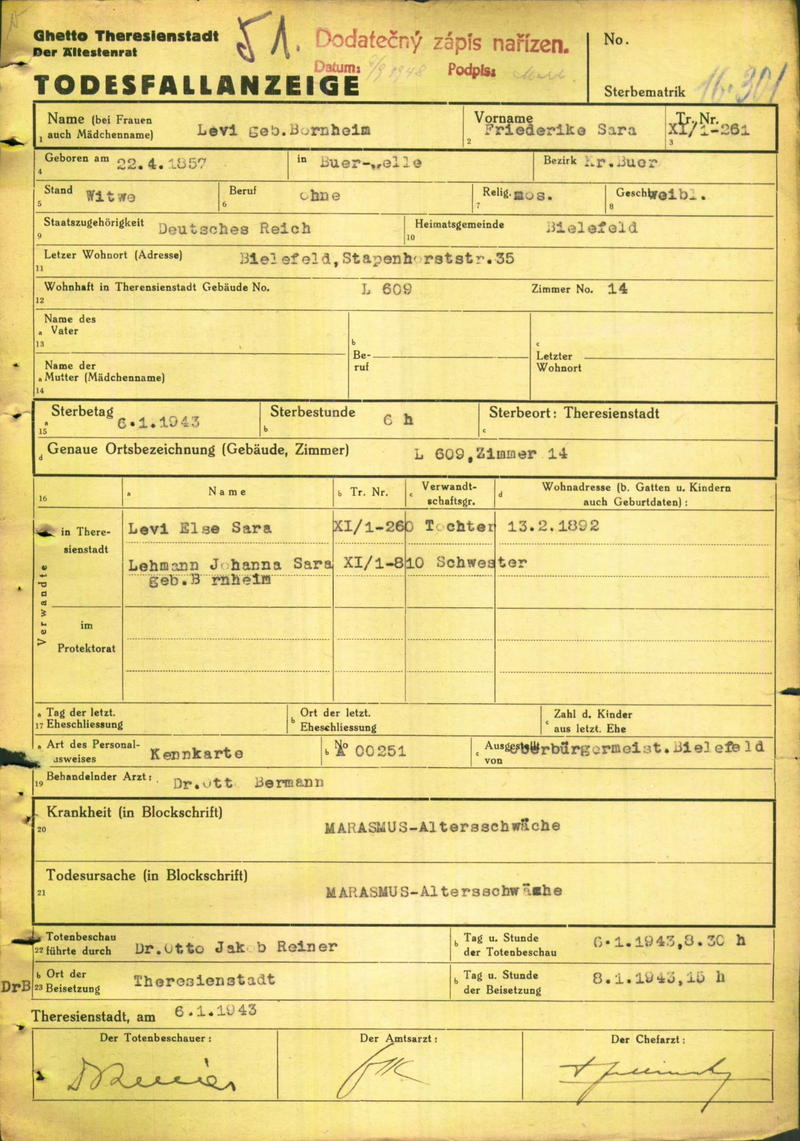 Ghetto Theresienstadt
Der Ältestenrat
Dodatečný zápis nařízen.
Datum: Podpis:
TODESFALLANZEIGE
No.
Sterbematrik 16-301
Name (bei Frauen
1 auch Mädchenname) Levi geb.Bornheim
Vorname
2 Friederike Sara
Tr. Nr.
3 XI/1-261
Geboren am 22.4.1857 in Buer-Welle Bezirk Kr.Buer
4
Stand Witwe Beruf ohne Relig. mos. Geschl weibl.
5 6 7 8
Staatszugehörigkeit Deutsches Reich Heimatsgemeinde Bielefeld
9 10
Letzer Wohnort (Adresse) Bielefeld,Stapenhorststr.35
11
Wohnhaft in Theresienstadt Gebäude No. L 609 Zimmer No. 14
12
Name des
a Vater
13
b
Be-
ruf
c
Letzter
Wohnort
Name der
a Mutter (Mädchenname)
14
Sterbetag 6.1.1943 Sterbestunde 6 h Sterbeort: Theresienstadt
a 15 b c
d Genaue Ortsbezeichnung (Gebäude, Zimmer) L 609,Zimmer 14
16 a Name b Tr. Nr. c Verwandt-
schaftsgr. d Wohnadresse (b. Gatten u. Kindern
auch Geburtdaten) :
Verwandte
in There-
sienstadt
Levi Else Sara XI/1-260 Tochter 13.2.1892
Lehmann Johanna Sara XI/1-810 Schwester
geb.B rnheim
im
Protektorat
a Tag der letzt.
17 Eheschliessung
b Ort der letzt.
Eheschliessung
c Zahl d. Kinder
aus letzt. Ehe
a Art des Personal-
ausweises Kennkarte b No A 00251 c Ausgest.
von Oberbürgermeist.Bielefeld
Behandelnder Arzt: Dr.Ott Bermann
19
Krankheit (in Blockschrift)
20 MARASMUS-Altersschwäche
Todesursache (in Blockschrift)
21 MARASMUS-Altersschwäche
a Totenbeschau
22 führte durch Dr.Otto Jak b Reiner
b Tag u. Stunde
der Totenbeschau 6.1.1943,8.30 h
DrB
b Ort der
23 Beisetzung Theresienstadt
b Tag u. Stunde
der Beisetzung 8.1.1943,15 h
Theresienstadt, am 6.1.1943
Der Totenbeschauer : Der Amtsarzt : Der Chefarzt :